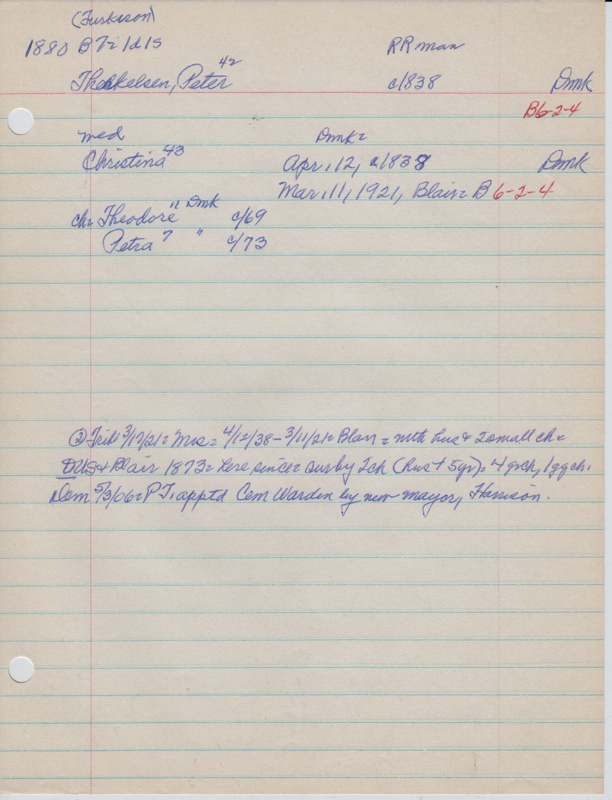 (Turkison)
1880 B Ti 1d15 RR man
Therkelsen, Peter 42 c1838 Dmk
B6-2-4
med Dmk=
Christina 43 Apr. 12, c1838 Dmk
Mar. 11, 1921, Blair= B 6-2-4
ch= Theodore 11 Dmk c/69
Petra 7 " c/73
② Trib 3/17/21= Mrs= 4/12/38-3/11/21= Blair= with hus & 2 small ch=
US & Blair 1873= here since= survby 2ch (hus + 5yr)= 4 grch, 1ggch.
Dem 5/3/06= P T. apptd Cem Warden by new mayor, Harrison.